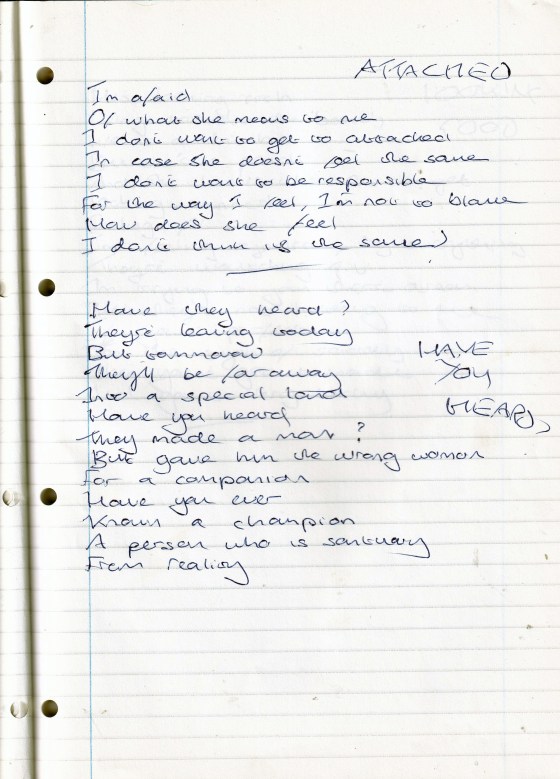 ATTACHED
I'm afaid
Of what she means to me
I don't want to get to attached
In case she doesn't feel the same
I don't want to be responsible
For the way I feel, I'm not to blame
How does she feel
I don't think its the same
Have they heard?
They're leaving today
But tommorow
They'll be faraway
Into a special land
Have you heard
They made a man?
But gave him the wrong woman
For a companion
Have you ever
Known a champion
A person who is santuary
From reality
HAVE
YOU
HEARD,